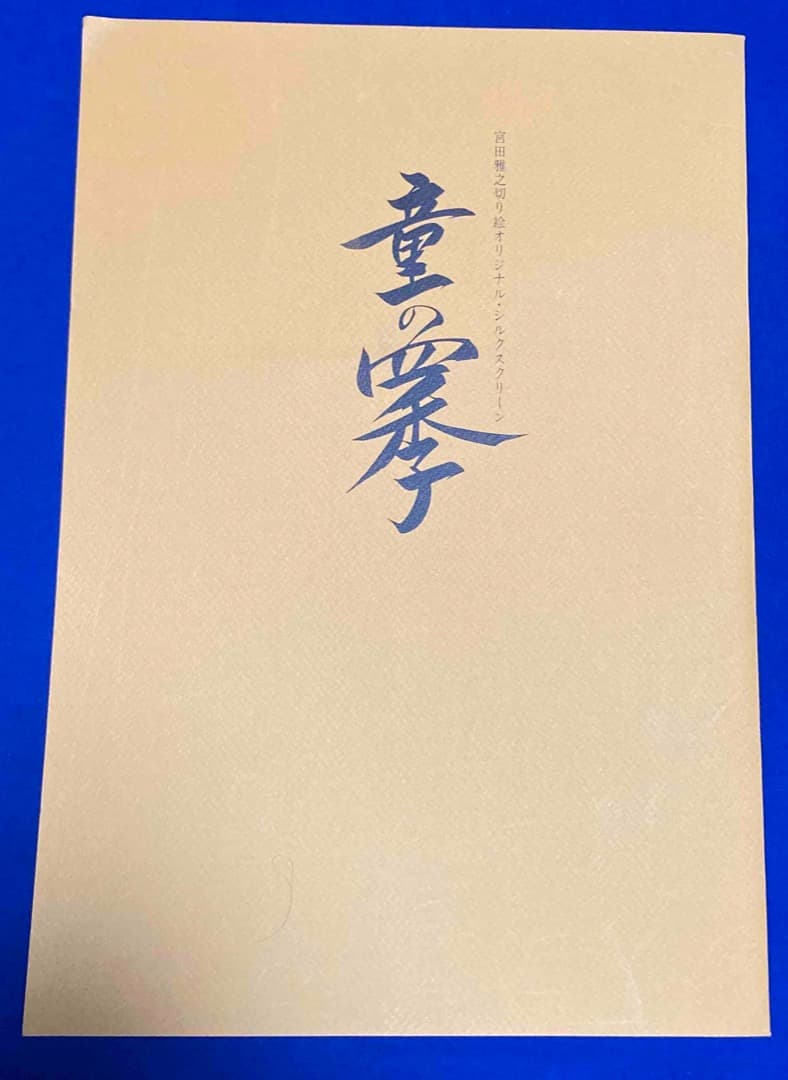 宮田雅之切り絵オリジナル・シルクスクリーン
童の四季